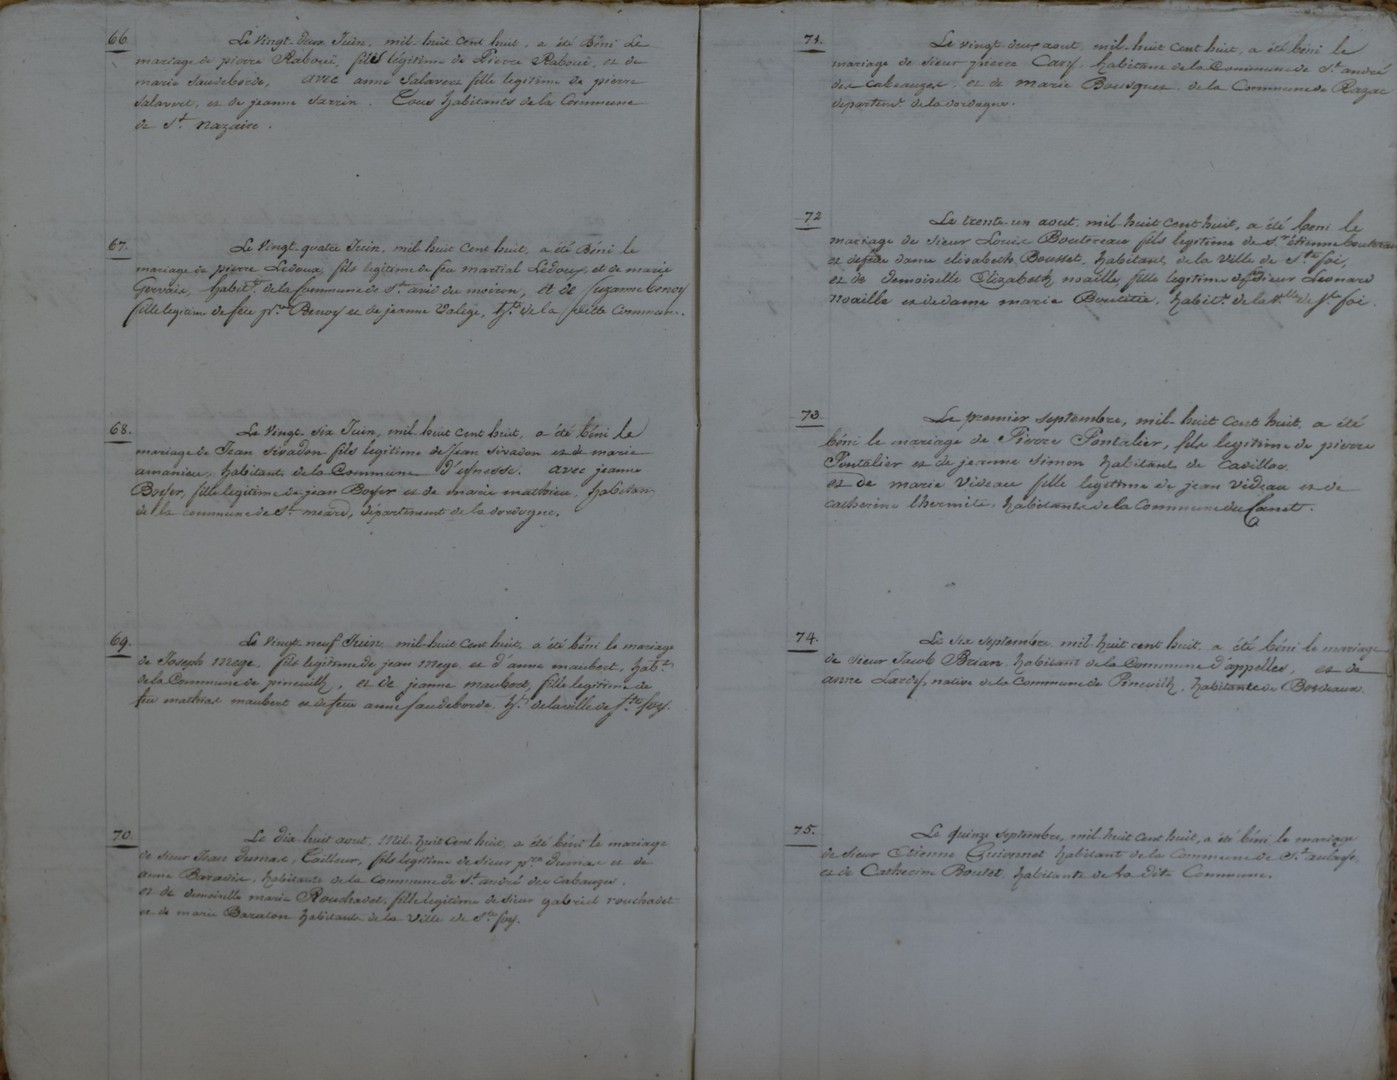 66.
Le vingt-deux Juin, mil-huit cent huit, a été Béni Le
mariage de pierre Raboui, fils légitime de Pierre Raboui, et de
marie saudeborde, avec anne Salavert fille legitime de pierre
salavert, et de jeanne sarrin. Tous habitants de la Commune
de St. Nazaire.
67.
Le Vingt-quatre Juin, mil-huit Cent huit, a été Béni le
mariage de pierre Ledoux, fils légitime de feu martial Ledoux, et de marie
Gervais, habitt. de la Commune de St. avid du moiron, et de Suzanne benoy
fille legitime de feu pre. Benoy et de jeanne, ht. de la ditte Commune.
68.
Le Vingt-six Juin, mil huit cent huit, a été béni le
mariage de Jean Sivadon fils légitime de jean sivadon et de marie
amanieu, habitant de la Commune d'eynesse. avec jeanne
Boyer, fille legitime de jean Boyer et de marie mathieu, habitant
de la commune de St. meard, département de la dordogne.
69.
Le Vingt-neuf Juin, mil-huit Cent huit, a été béni le mariage
de Joseph Mege, fils legitime de jean Mege et d'anne maubert, habt.
de la Commune de pineuilh, et de jeanne maubert, fille legitime de
feu mathias maubert et de feue anne saudeborde, ht. de la ville de Ste foy.
70.
Le dix-huit aout, Mil-huit Cent huit, a été béni le mariage
de sieur Isaac Dumas, Tailleur, fils legitime de sieur pre Dumas et de
anne, habitante de la Commune de St. andré des Cabauges.
et de demoiselle marie Rouchadet, fille legitime de sieur gabriel rouchadet
et de marie Baraton habitants de la Ville de Ste. foy.
71.
Le vingt-deux aout, mil-huit Cent huit, a été béni le
mariage de sieur pierre Cary, habitant de la Commune de St. andré
des Cabauges, et de marie Bousquet, de la Commune de Razac
départemt. de la dordogne.
72
Le trente-un aout, mil-huit Cent huit, a été béni le
mariage de sieur Louis Boutereau fils legitime de Sr. étienne boutereau
et de feue dame elisabeth Bousset, habitant de la Ville de Ste foi,
et de demoiselle Elizabeth noaille, fille legitime de feu sieur Leonard
Noaille et de dame marie, habitt. de la Ville de Ste foi
73.
Le premier septembre, mil-huit cent huit, a été
béni le mariage de Pierre Pontalier, fils legitime de pierre
Pontalier et de jeanne simon habitant de Cavillac.
et de marie Videau fille legitime de jean Videau et de
catherine lhermite, habitante de la Commune du Canet.
74.
Le six septembre, mil huit cent huit, a été béni le mariage
de sieur Jacob Brian, habitant de la Commune d'appelles, et de
anne Lardy, native de la Commune de Pineuilh, habitante de Bordeaux.
75.
Le quinze septembre, mil huit Cent huit, a été béni le mariage
de sieur Etienne Guionnet habitant de la Commune de St. aulaye,
et de Catherine Boutet, habitante de la dite Commune.